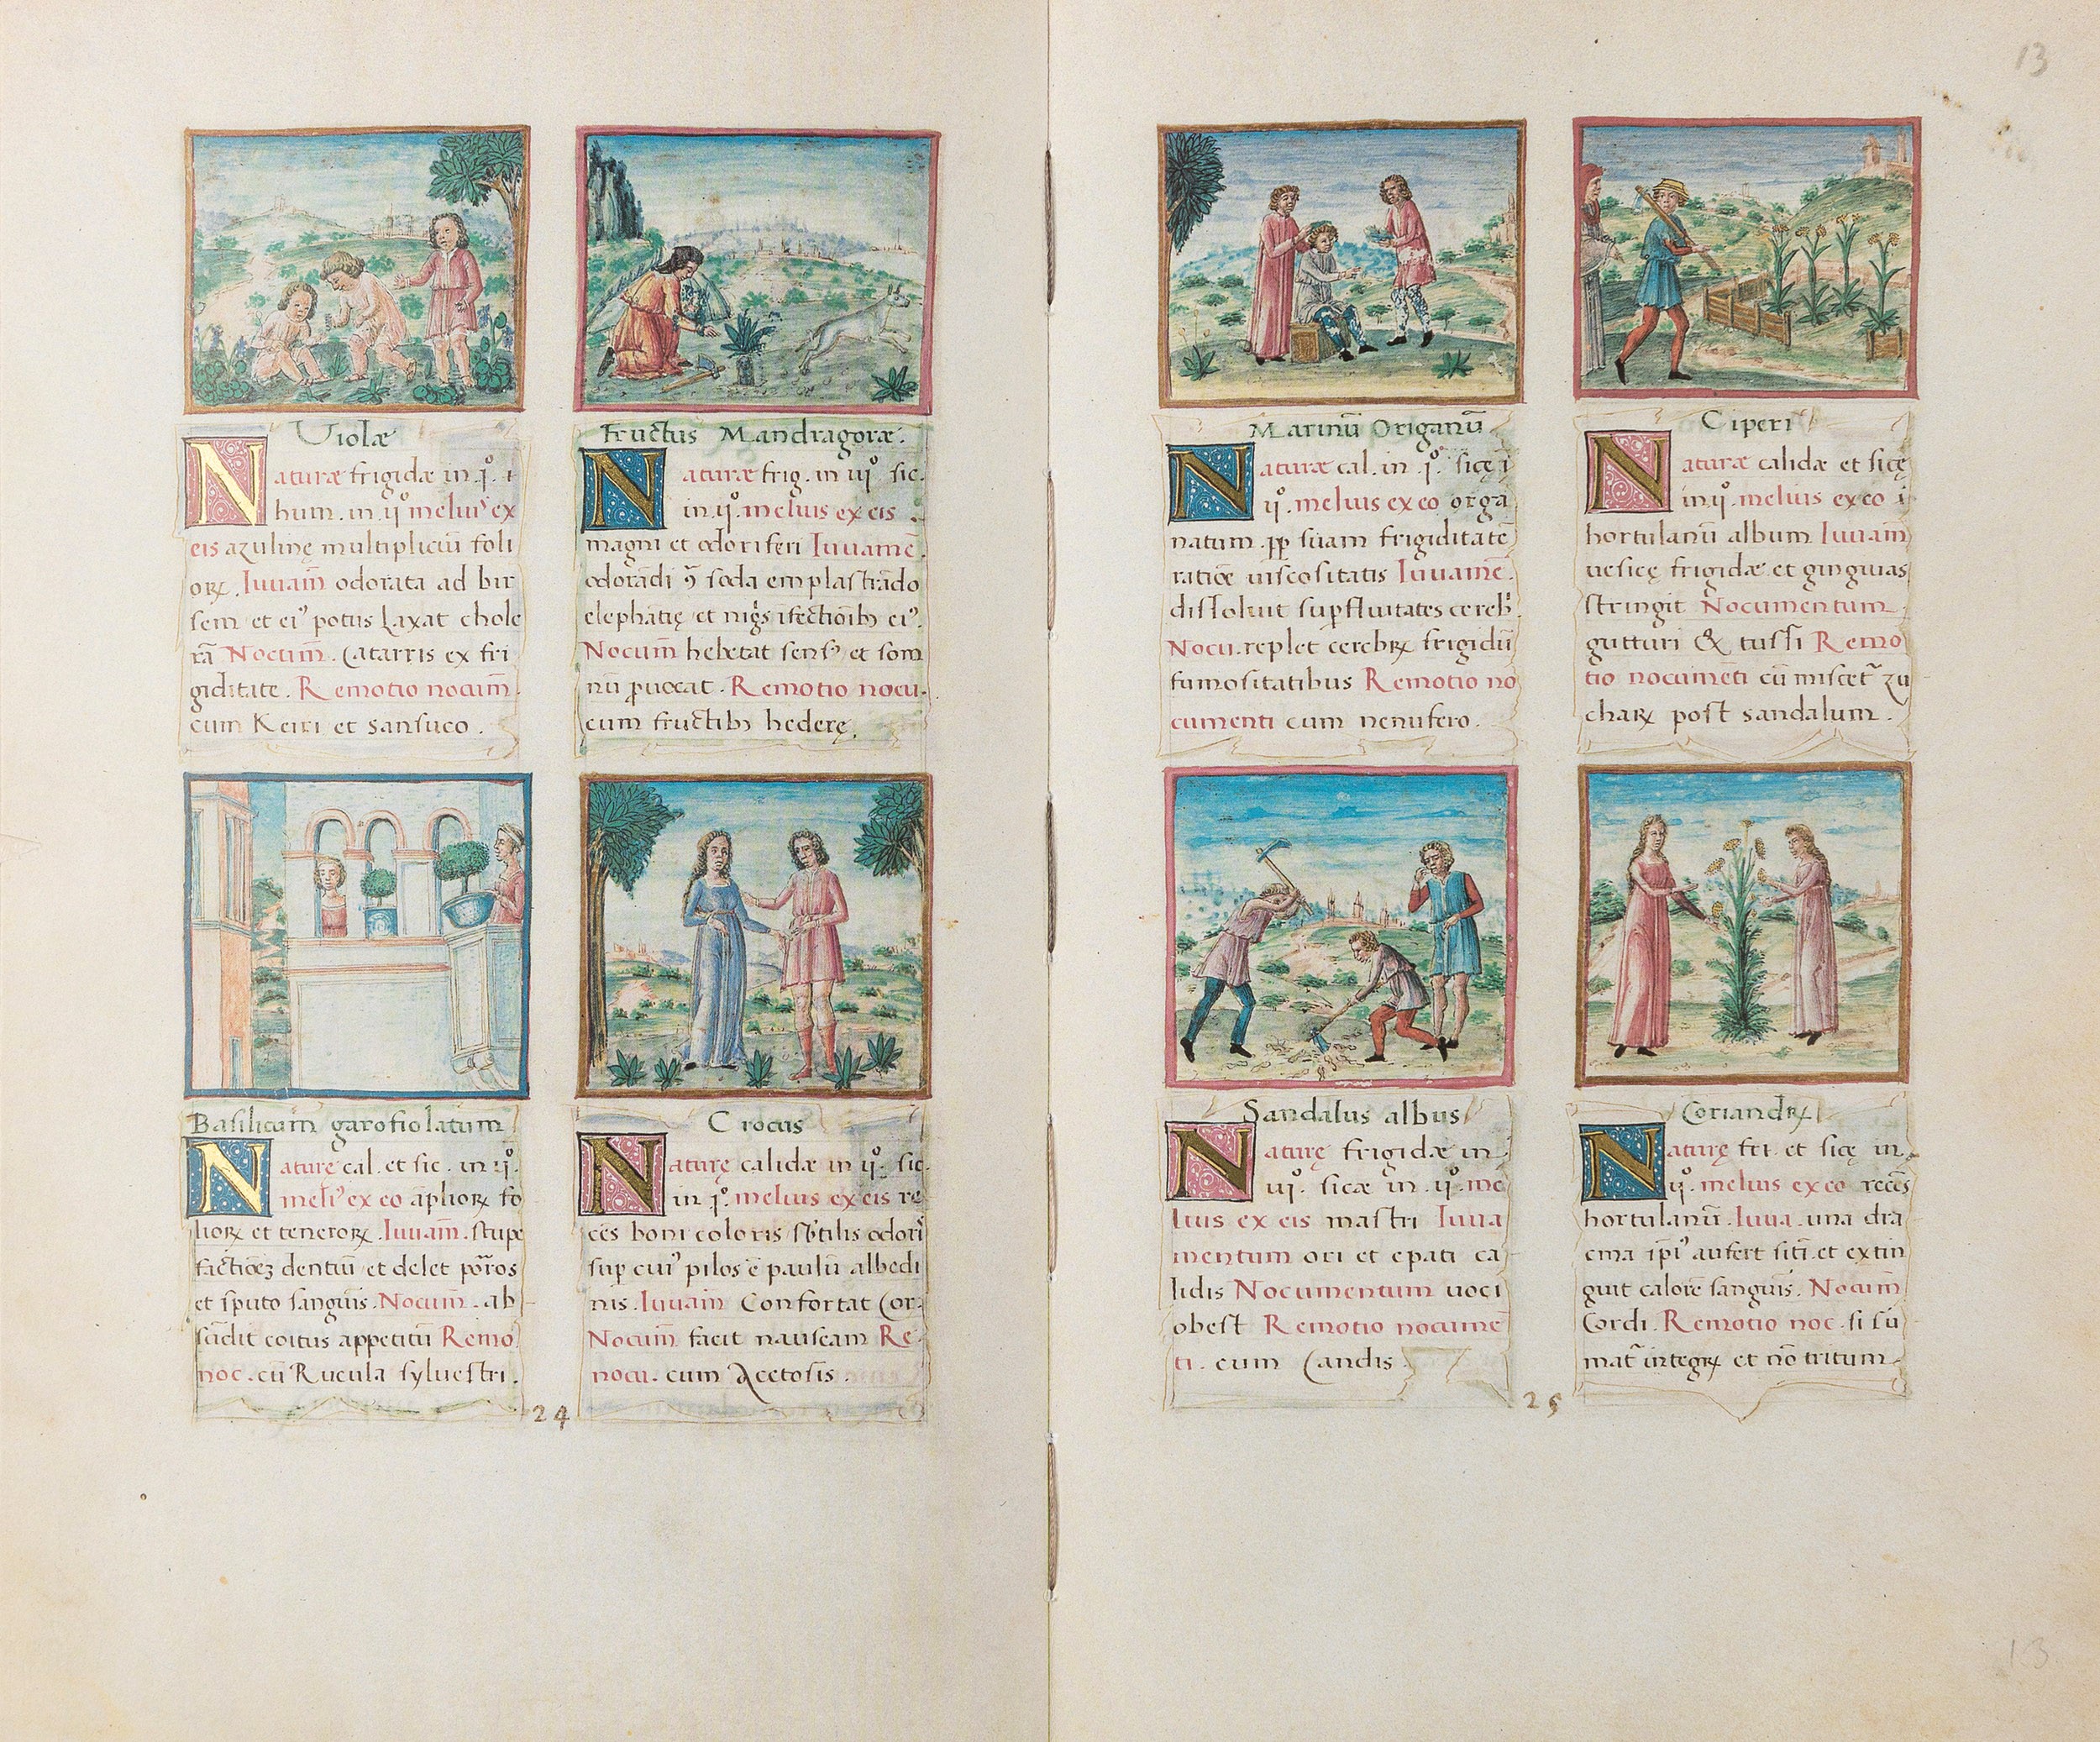 13
Violæ
Naturæ frigidæ in .j.º τ
hum. in ijº meliusꝰ ex
eis azulinę multipliciũ foli
oꝝ. Iuuam̃ odorata ad bir
sem et eiꝰ potus laxat chole
rã Nocum̃. Catarris ex fri
giditate. Remotio nocum̃.
cum Keiri et sansuco.
Fructus Mandragoræ.
Naturæ frig. in iijº sic.
in ijº. melius ex eis
magni et odoriferi Iuuamẽ.
odorãdi ꝯ̃ soda emplastrãdo
elephãtię et nigs̃ ifectiõibꝫ eiꝰ.
Nocum̃ hebetat sensꝰ et som
nũ ꝓuocat. Remotio nocu.
cum fructibꝫ hederę.
Basilicum garofiolatum
Naturę cal. et sic. in ijº.
meliꝰ ex eo ãplioꝝ fo
lioꝝ et teneroꝝ. Iuuam̃. stupe
factiõeꝫ dentiũ et delet põros
et sputo sanguis. Nocum̃. ab
scĩdit coitus appetitũ Remo
noc. cũ Rucula syluestri.
Crocus
Naturę calidæ in ijº. sic.
in jº. melius ex eis re
cẽs boni coloris sb̃tilis odori
sup cuiꝰ pilos ẽ paulũ albedi
nis. Iuuam̃ Confortat Cor.
Nocum̃ facit nauseam Re.
nocu. cum Acetosis.
24
Marinũ Origanũ
Naturæ cal. in .jº. sicę ĩ
ijº. melius ex eo orga
natum. ꝓp̃ suam frigiditatẽ
ratiõe uiscositatis Iuuamẽ.
dissoluit supfluitates cereb̃.
Nocu. replet cerebꝝ frigidũ
fumositatibus Remotio no
cumenti cum nenufero.
Ciperi
Naturæ calidæ et sicę
in ijº. melius ex eo ĩ
hortulanũ album Iuuam̃
uesicę frigidæ et gingiuas
stringit Nocumentum
gutturi & tussi Remo
tio nocumẽti cũ miscet̃ zu
chaꝝ post sandalum.
Sandalus albus
Naturę frigidæ in
iijº. sicæ in ijº. me
lius ex eis mastri Iuua
mentum ori et epati ca
lidis Nocumentum uoci
obest Remotio nocumẽ
ti. cum Candis
Coriandꝝ
Naturę fri. et sicę in
ijº. melius ex eo recẽs
hortulanũ. Iuua. una dra
cma ip̃iꝰ aufert sitĩ. et extin
guit calorẽ sanguis. Nocum̃
Cordi. Remotio noc. si sũ
mat̃ integꝝ et nõ tritum.
25
13